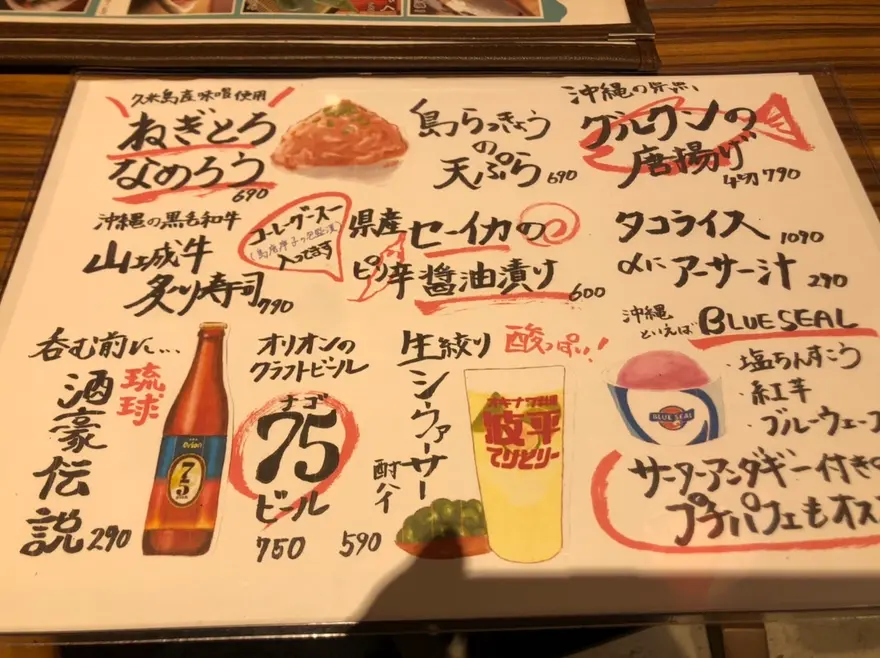 久米島産味噌使用
ねぎとろ
なめろう
690
島らっきょう
の
天ぷら 690
沖縄の
グルクンの
唐揚げ
4切 790
沖縄の黒毛和牛
山城牛
炙り寿司 790
コーレーグースー
入ってます
県産 セーイカの
ピリ辛 醤油漬け
600
タコライス
1090
〆に アーサー汁 290
呑む前に…
琉球
酒豪伝説 290
Orion
75
BEER
オリオンの
クラフトビール
ナゴ
75
ビール
750
生絞り 酸っぱい!
シークヮーサー
酎ハイ
590
波平
てびとりー
沖縄
といえば BLUE SEAL
BLUE SEAL
・塩ちんすこう
・紅芋
・ブルーウェーブ
サーターアンダギー付きの
プチパフェもオス